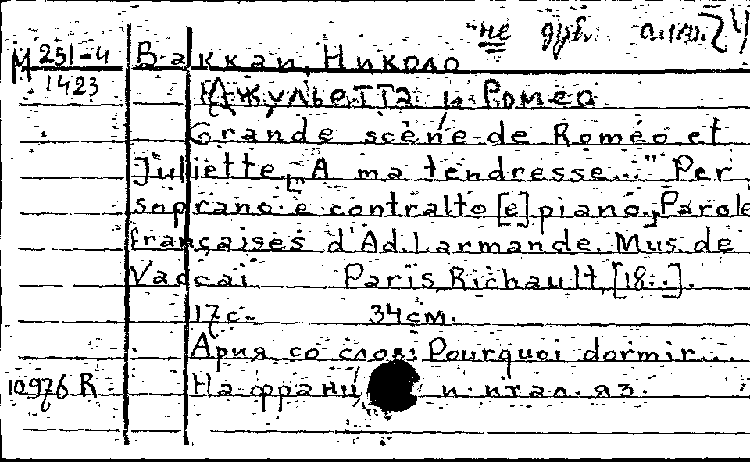 "не
М 251-4 Ваккаи, Николо
1423 [Джульетта и Ромео
Grande scène de Roméo et
Juliette „A ma tendresse..." Per
soprano e contralto [e] piano. Parole
françaises d'Ad. Larmande. Mus. de
Vaccai Paris, Richault, [18..].
17с. 34см.
Ария со слов: Pourquoi dormir...
10976 R На франц. и итал. яз.